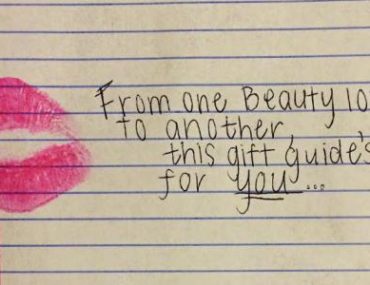 From one Beauty lo
to another,
this gift guide's
for you...